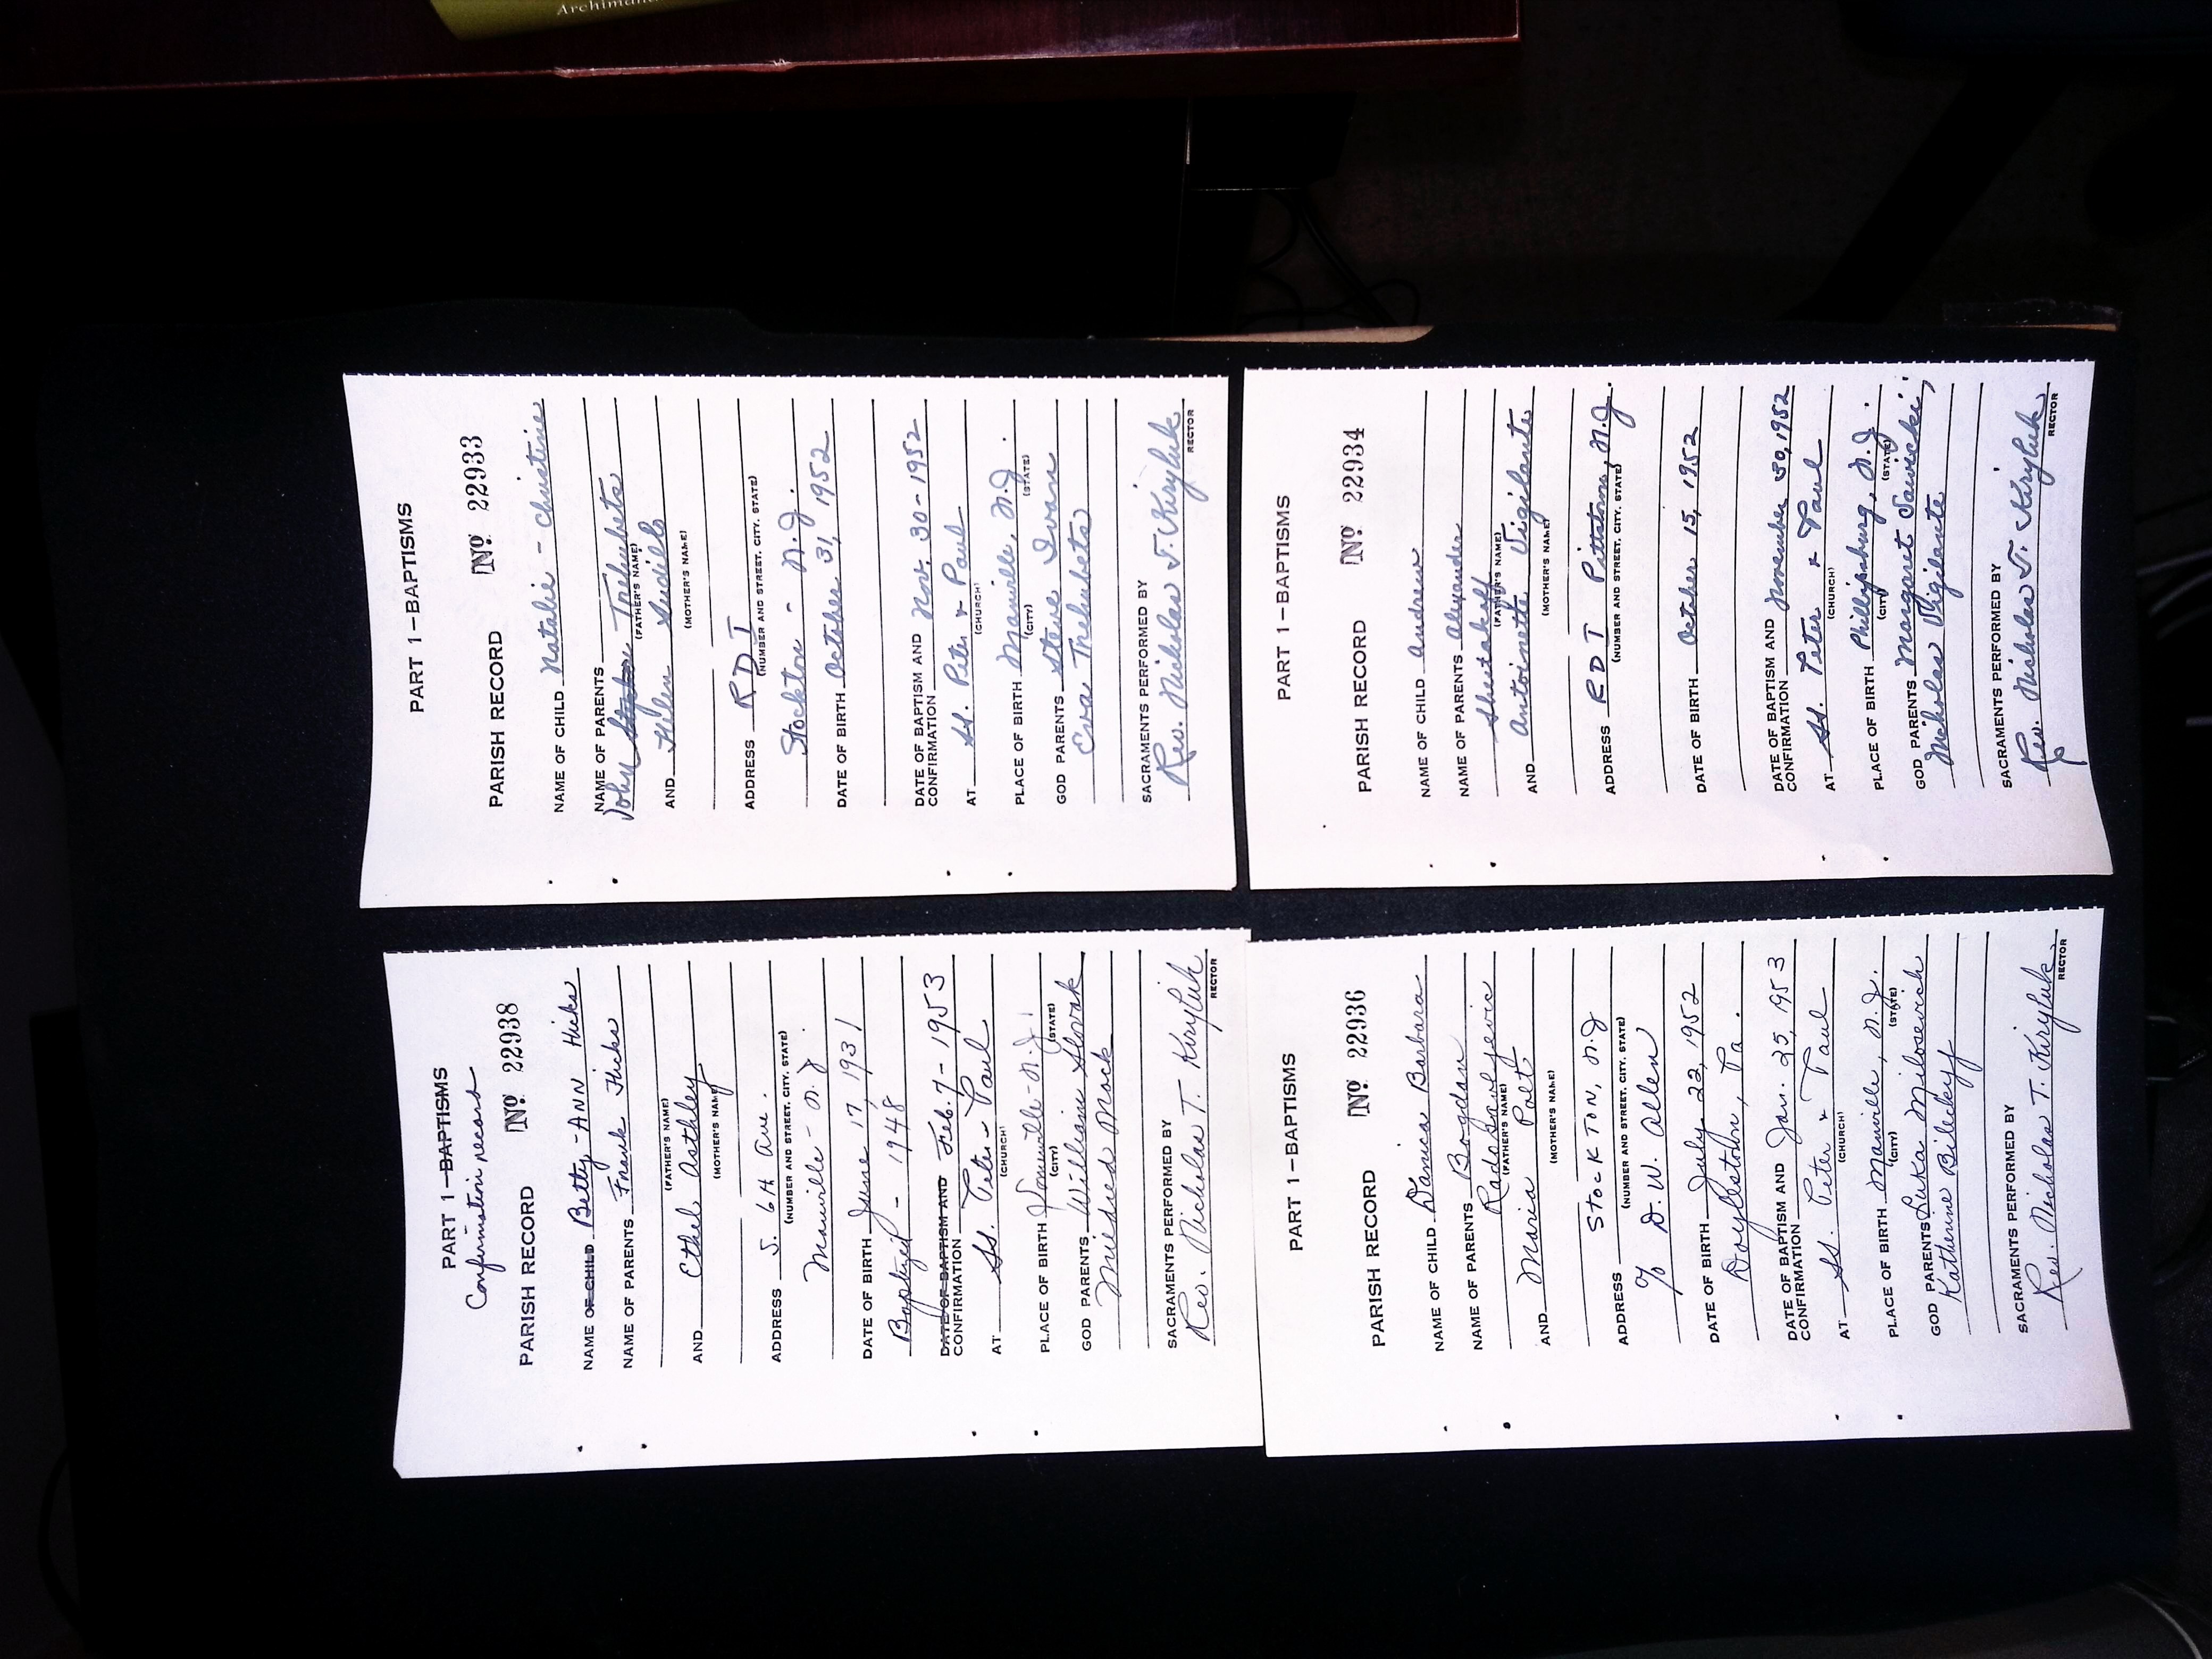 PART 1—BAPTISMS
Confirmation record
PARISH RECORD No 22938
NAME OF CHILD Betty-Ann Hicks
NAME OF PARENTS Frank Hicks
(FATHER'S NAME)
AND Ethel Asthley
(MOTHER'S NAME)
ADDRESS S. 6th Ave.
(NUMBER AND STREET, CITY, STATE)
Manville - N.J.
DATE OF BIRTH June 17, 1931
Baptized - 1948
DATE OF BAPTISM AND
CONFIRMATION Feb. 7 - 1953
AT SS. Peter & Paul
(CHURCH)
PLACE OF BIRTH Somerville - N.J.
(CITY) (STATE)
GOD PARENTS William Slovak
Mildred Mack
SACRAMENTS PERFORMED BY
Rev. Nicholas T. Kiryluk
RECTOR
PART 1—BAPTISMS
PARISH RECORD No 22933
NAME OF CHILD Natalie - Christine
NAME OF PARENTS
John Trehubets
(FATHER'S NAME)
AND Helen
(MOTHER'S NAME)
ADDRESS R D I
(NUMBER AND STREET, CITY, STATE)
Stockton - N.J.
DATE OF BIRTH October 31, 1952
DATE OF BAPTISM AND
CONFIRMATION Nov. 30 - 1952
AT SS. Peter & Paul
(CHURCH)
PLACE OF BIRTH Manville, N.J.
(CITY) (STATE)
GOD PARENTS Steve Ivan
Eva Trehubets
SACRAMENTS PERFORMED BY
Rev. Nicholas T. Kiryluk
RECTOR
PART 1—BAPTISMS
PARISH RECORD No 22936
NAME OF CHILD Danica Barbara
NAME OF PARENTS Bogdan
Radosavljevic
(FATHER'S NAME)
AND Maria Palt
(MOTHER'S NAME)
STOCKTON, N.J
ADDRESS
(NUMBER AND STREET, CITY, STATE)
% D. W. Allen
DATE OF BIRTH July 22, 1952
Doylestown, Pa.
DATE OF BAPTISM AND
CONFIRMATION Jan. 25, 1953
AT SS. Peter & Paul
(CHURCH)
PLACE OF BIRTH Manville, N.J.
(CITY) (STATE)
GOD PARENTS Luka Milosevich
Katherine Bileckyj
SACRAMENTS PERFORMED BY
Rev. Nicholas T. Kiryluk
RECTOR
PART 1—BAPTISMS
PARISH RECORD No 22934
NAME OF CHILD Andrew
NAME OF PARENTS Alexander
Shestakoff
(FATHER'S NAME)
AND Antoinette Vigilante
(MOTHER'S NAME)
ADDRESS R D I Pittstown, N.J.
(NUMBER AND STREET, CITY, STATE)
DATE OF BIRTH October 15, 1952
DATE OF BAPTISM AND
CONFIRMATION November 30, 1952
AT SS. Peter & Paul
(CHURCH)
PLACE OF BIRTH Phillipsburg, N.J.
(CITY) (STATE)
GOD PARENTS Margaret Sawicki,
Nicholas Vigilante
SACRAMENTS PERFORMED BY
Rev. Nicholas T. Kiryluk
RECTOR